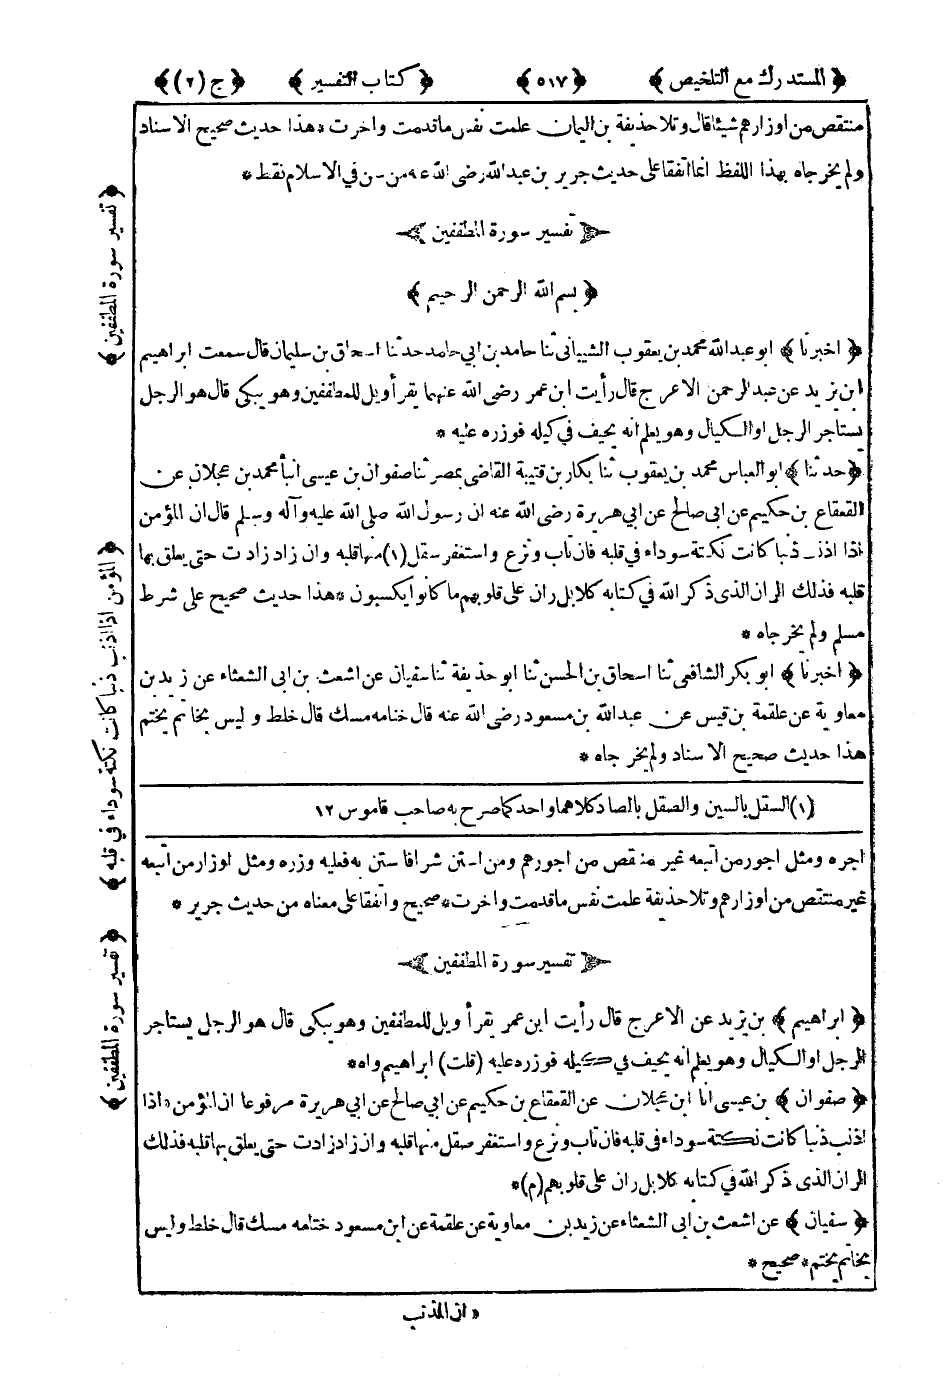 ﴿ المستدرك مع التلخيص ﴾ ﴿ ٥١٧ ﴾ ﴿ كتاب التفسير ﴾ ﴿ ج (٢) ﴾
منتقص من اوزارهم شيئا قال و تلا حذيفة بن اليمان علمت نفس ماقدمت واخرت * هذا حديث صحيح الاسناد
ولم يخرجاه بهذا اللفظ انما اتفقا على حديث جرير بن عبد الله رضى الله عنه من سن في الاسلام فقط *
تفسير سورة المطففين
﴿ بسم الله الرحمن الرحيم ﴾
﴿ اخبرنا ﴾ ابو عبد الله محمد بن يعقوب الشيبانى ثنا حامد بن ابي حامد حدثنا اسحاق بن سليمان قال سمعت ابراهيم
ابن يزيد عن عبد الرحمن الاعرج قال رأيت ابن عمر رضى الله عنهما يقرأ ويل للمطففين وهو يبكى قال هو الرجل
يستاجر الرجل او الكيال وهو يعلم انه يحيف في كيله فوزره عليه *
﴿ حدثنا ﴾ ابو العباس محمد بن يعقوب ثنا بكار بن قتيبة القاضى بمصر ثنا صفوان بن عيسى انبأ محمد بن عجلان عن
القعقاع بن حكيم عن ابى صالح عن ابي هريرة رضى الله عنه ان رسول الله صلى الله عليه وآله وسلم قال ان المؤمن
اذا اذنب ذنبا كانت نكتة سوداء في قلبه فان تاب ونزع واستغفر سقل (١) منها قلبه وان زاد زادت حتى يعلق بها
قلبه فذلك الران الذى ذكر الله في كتابه كلا بل ران على قلوبهم ما كانوا يكسبون * هذا حديث صحيح على شرط
مسلم ولم يخرجاه *
﴿ اخبرنا ﴾ ابو بكر الشافعى ثنا اسحاق بن الحسن ثنا ابو حذيفة ثنا سفيان عن اشعث بن ابى الشعثاء عن زيد بن
معاوية عن علقمة بن قيس عن عبد الله بن مسعود رضى الله عنه قال ختامه مسك قال خلط و ليس بخاتم يختم
هذا حديث صحيح الاسناد ولم يخرجاه *
(١) السقل بالسين والصقل بالصاد كلاهما واحد كما صرح به صاحب قاموس ١٢
اجره ومثل اجور من اتبعه غير منتقص من اجورهم ومن استن شرا فاستن به فعليه وزره ومثل اوزار من اتبعه
غير منتقص من اوزارهم وتلا حذيفة علمت نفس ماقدمت واخرت * صحيح واتفقا على معناه من حديث جرير *
تفسير سورة المطففين
﴿ ابراهيم ﴾ بن يزيد عن الاعرج قال رأيت ابن عمر يقرأ ويل للمطففين وهو يبكى قال هو الرجل يستاجر
الرجل او الكيال وهو يعلم انه يحيف في كيله فوزره عليه (قلت) ابراهيم واه *
﴿ صفوان ﴾ بن عيسى انا ابن عجلان عن القعقاع بن حكيم عن ابي صالح عن ابي هريرة مرفوعا ان المؤمن * اذا
اذنب ذنبا كانت نكتة سوداء فى قلبه فان تاب ونزع واستغفر صقل منها قلبه وان زاد زادت حتى يعلق بها قلبه فذلك
الران الذى ذكر الله في كتابه كلا بل ران على قلوبهم (م) *
﴿ سفيان ﴾ عن اشعث بن ابى الشعثاء عن زيد بن معاوية عن علقمة عن ابن مسعود ختامه مسك قال خلط وليس
بخاتم يختم * صحيح *
* ان المذنب
﴿ تفسير سورة المطففين ﴾
﴿ المؤمن اذا اذنب ذنبا كانت نكتة سوداء في قلبه ﴾
﴿ تفسير سورة المطففين ﴾